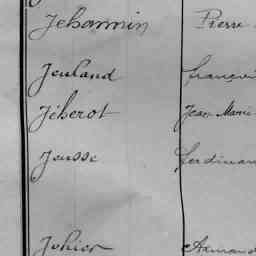 Jehannin Pierre
Jeuland François
Jéherot Jean Marie
Jeusse Ferdinan
Johier Armand